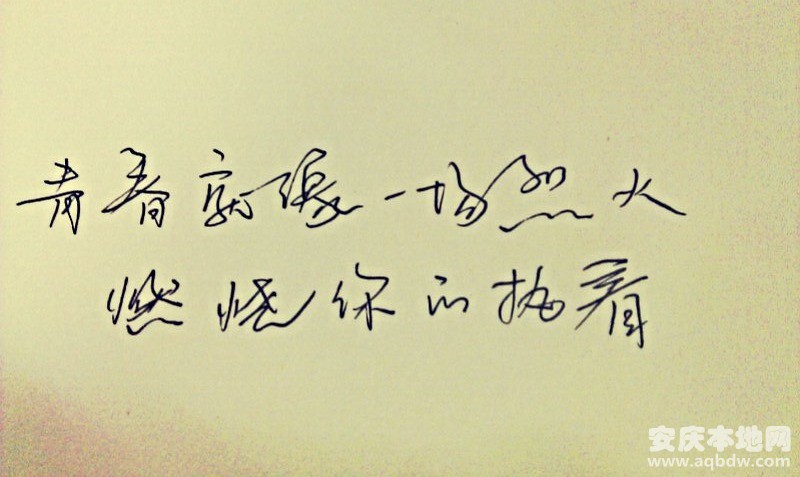 青春就像一场烈火
燃烧你的执着
安庆本地网
www.aqbdw.com